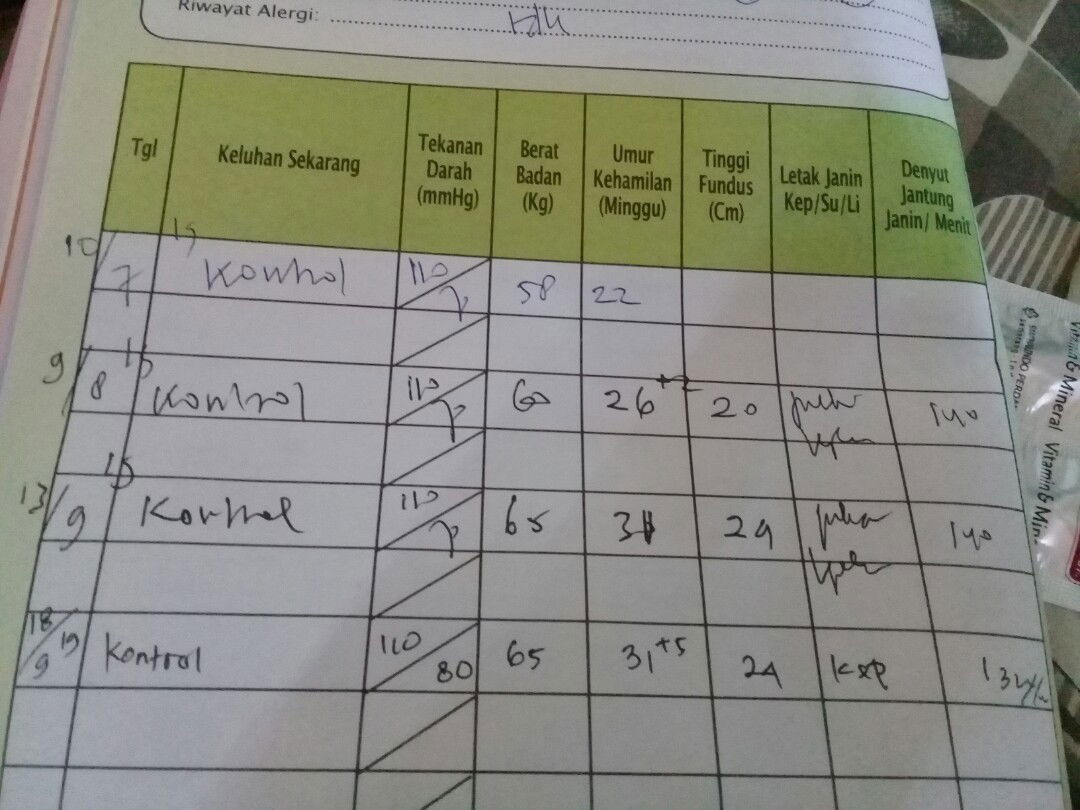 Riwayat Alergi:
Tgl Keluhan Sekarang Tekanan Darah (mmHg) Berat Badan (Kg) Umur Kehamilan (Minggu) Tinggi Fundus (Cm) Letak Janin Kep/Su/Li Denyut Jantung Janin/ Menit
10/7 Kontrol 110/7 58 22
9/8 15 Kontrol 110/7 60 26 20 140
13/9 15 Kontrol 110/7 65 31 24 140
18/9 19 Kontrol 110/80 65 31+5 24
Vitamin & Mineral Vitamin & Min